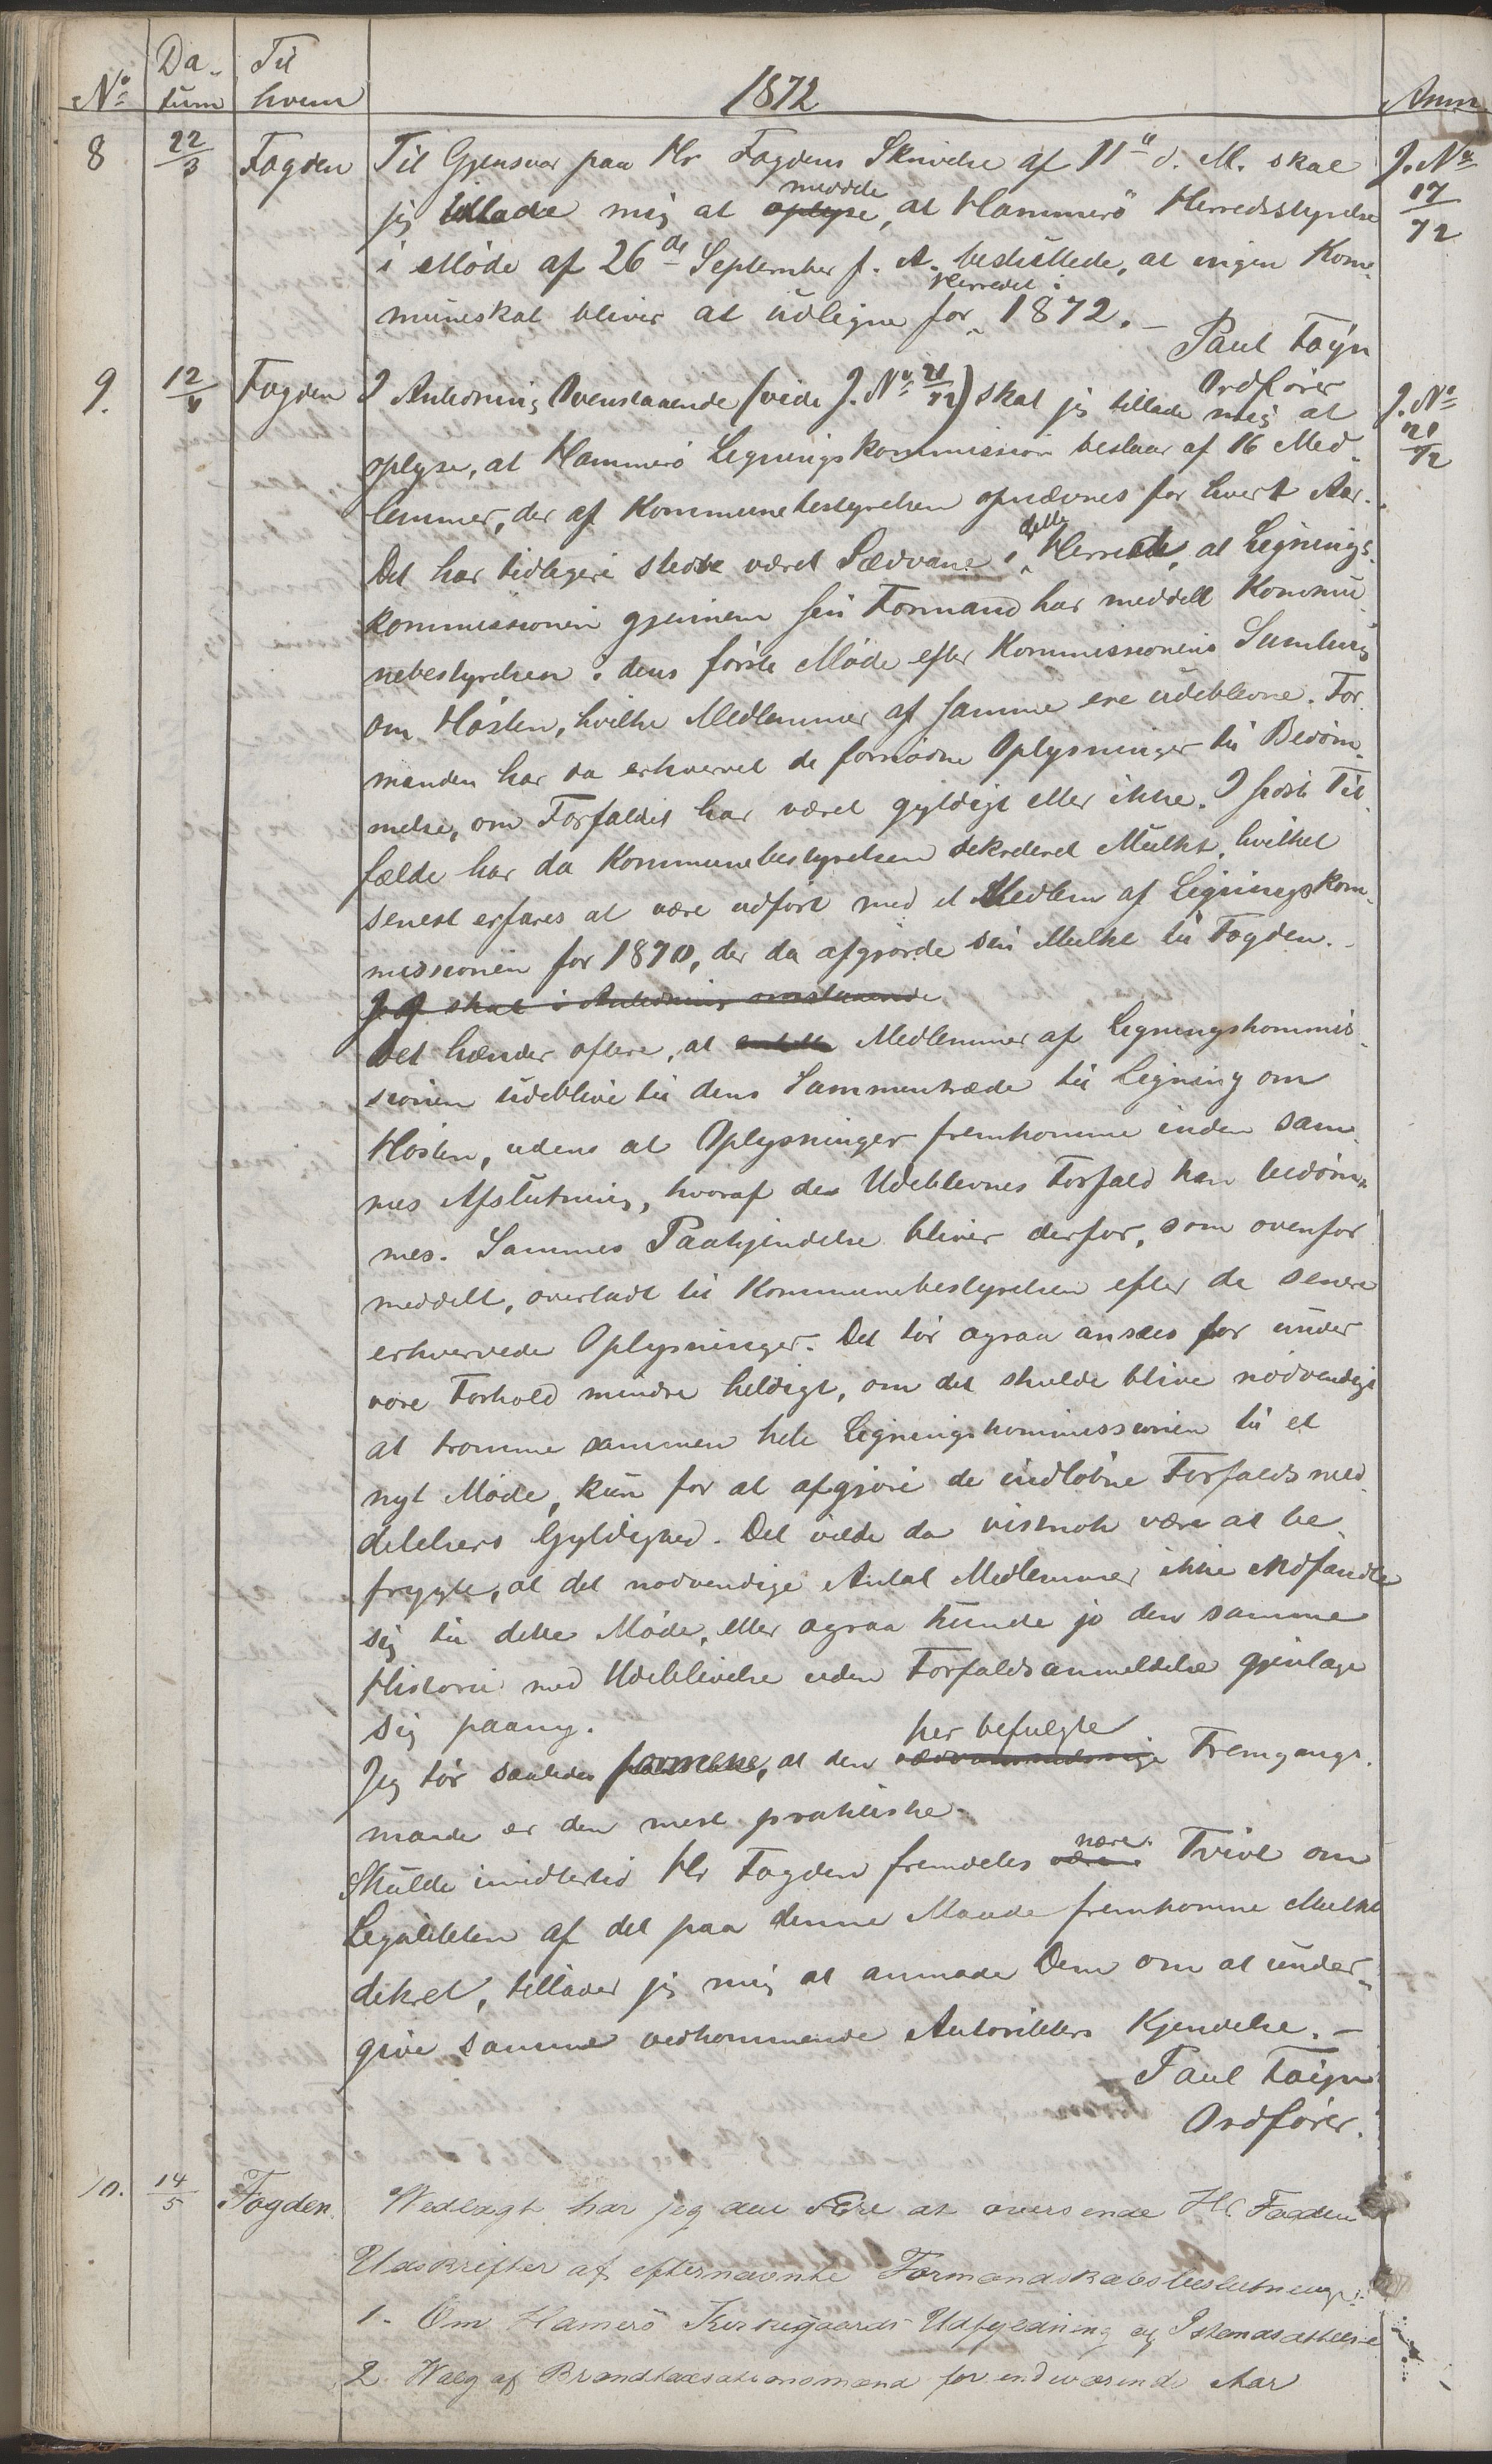 Da- Til
No tum hvem 1872 Anm.
8 22/3 Fogden Til Gjensvar paa Hr Fogdens Skrivelse af 11te d. M. skal J. No 17/72
jeg tillade mig at oplyse meddele, at Hammerö Herredsstyrelse
i Møde af 26de September f. A. besluttede, at ingen Kom-
muneskat bliver at udligne for Herredet i 1872. –
Paul Tøyn
Ordfører
9. 12/4 Fogden I Anledning Ovenstaaende (vide J. No 21/72) skal jeg tillade mig at J. No 21/72
oplyse, at Hammerö Ligningskommission bestaar af 16 Med-
lemmer, der af Kommunebestyrelsen opnævnes for hvert Aar.
Det har tidligere stedse været Sædvane i dette Herred, at Lignings-
kommissionen gjennem sin Formand har meddelt Kommu-
nebestyrelsen i dens første Møde efter Kommissionens Samling
om Høsten, hvilke Medlemmer af samme ere udeblevne. For-
manden har da erhvervet de fornødne Oplysninger til Bedøm-
melse, om Forfaldet har været gyldigt eller ikke. I sidste Til-
fælde har da Kommunebestyrelsen dekreteret Mulkt, hvilket
senest erfares at være udført med et Medlem af Ligningskom-
missionen for 1870, der da afgjorde sin Mulkt til Fogden. –
Jeg skal i Anledning
Det hænder oftere, at Medlemmer af Ligningskommis-
sionen udeblive til dens Sammentræde til Ligning om
Høsten, udens at Oplysninger fremkomme inden sam-
mes Afslutning, hvoraf de Udeblevnes Forfald kan bedøm-
mes. Sammes Paakjendelse bliver derfor, som ovenfor
meddelt, overladt til Kommunebestyrelsen efter de senere
erhvervede Oplysninger. Det tør ogsaa ansees for under
vore Forhold mindre heldigt, om det skulde blive nødvendigt
at tromme sammen hele Ligningskommissionen til et
nyt Møde, kun for at afgjøre de indløbne Forfaldsmed-
delelsers Gyldighed. Det vilde da vistnok være at be-
frygte, at det nødvendige Antal Medlemmer ikke indfandt
sig til dette Møde, eller ogsaa kunde jo den samme
Historie med Udeblivelse uden Forfaldsanmeldelse gjentage
sig paany.
Jeg tør saaledes formene, at den sædvansmæssige her befulgte Fremgangs-
maade er den mest praktiske.
Skulde imidlertid Hr Fogden fremdeles være nære Tvivl om
Legaliteten af det paa denne Maade fremkomne Mulkt-
dekret, tillader jeg mig at anmode Dem om at under-
give samme vedkommende Autoriteters Kjendelse. –
Paul Tøyn
Ordfører.
10. 14/5 Fogden. Vedlagt har jeg den Ære at oversende Hr. Fogden
Udskrifter af efternævnte Formandskabsbeslutninger:
1. Om Hamerö Kirkegaards Udfyldning og Istandsættelse
2 Valg af Brandtaxationsmænd for indeværende Aar